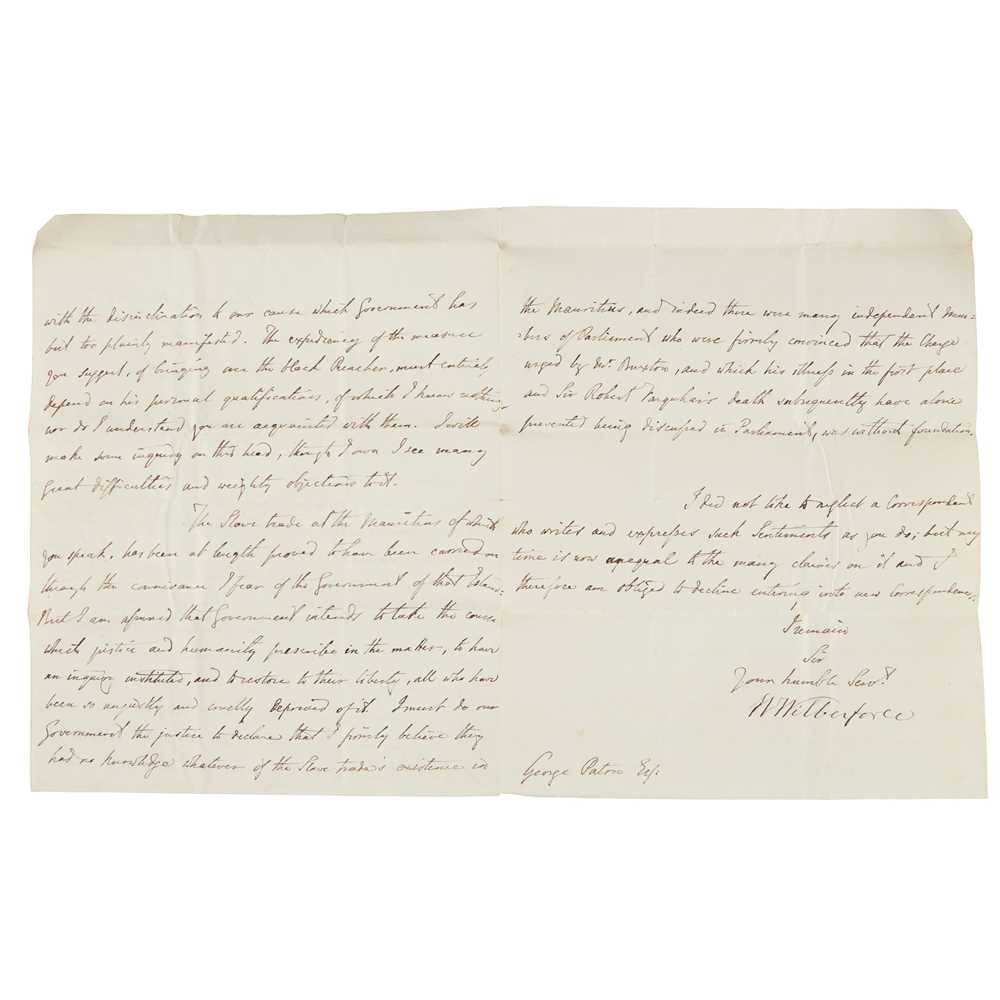 with the disinclination to our cause which Government has
but too plainly manifested. The expediency of the measure
you suggest, of bringing over the black Preacher, must entirely
depend on his personal qualifications, of which I know nothing,
nor do I understand you are acquainted with them. I will
make some inquiry on this head, though I own I see many
great difficulties and weighty objections to it.
The Slave trade at the Mauritius of which
you speak, has been at length proved to have been carried on
through the connivance I fear of the Government of that Island.
But I am assured that Government intends to take the course
which justice and humanity prescribe in the matter, to have
an inquiry instituted, and to restore to their liberty, all who have
been so unjustly and cruelly deprived of it. I must do our
Government the justice to declare that I firmly believe they
had no knowledge whatever of the Slave trade's existence in
the Mauritius, and indeed there were many independent Mem-
bers of Parliament who were firmly convinced that the Charge
urged by Mr. Buxton, and which his illness in the first place
and Sir Robert Farquhar's death subsequently have alone
prevented being discussed in Parliament, was without foundation.
I did not like to neglect a Correspondent
who writes and expresses such Sentiments as you do; but my
time is now unequal to the many claims on it and I
therefore am obliged to decline entering into new Correspondences.
I remain
Sir
Your humble Servt.
W Wilberforce
George Paton Esq: